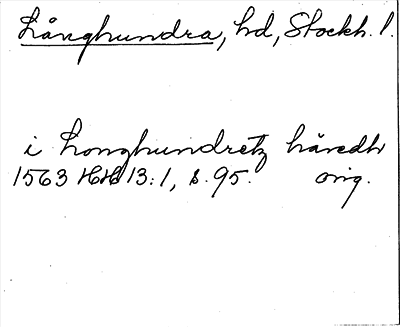 Långhundra, hd, Stockh. l.
i Longhundretz häredh
1563 HH 13:1, s. 95. orig.